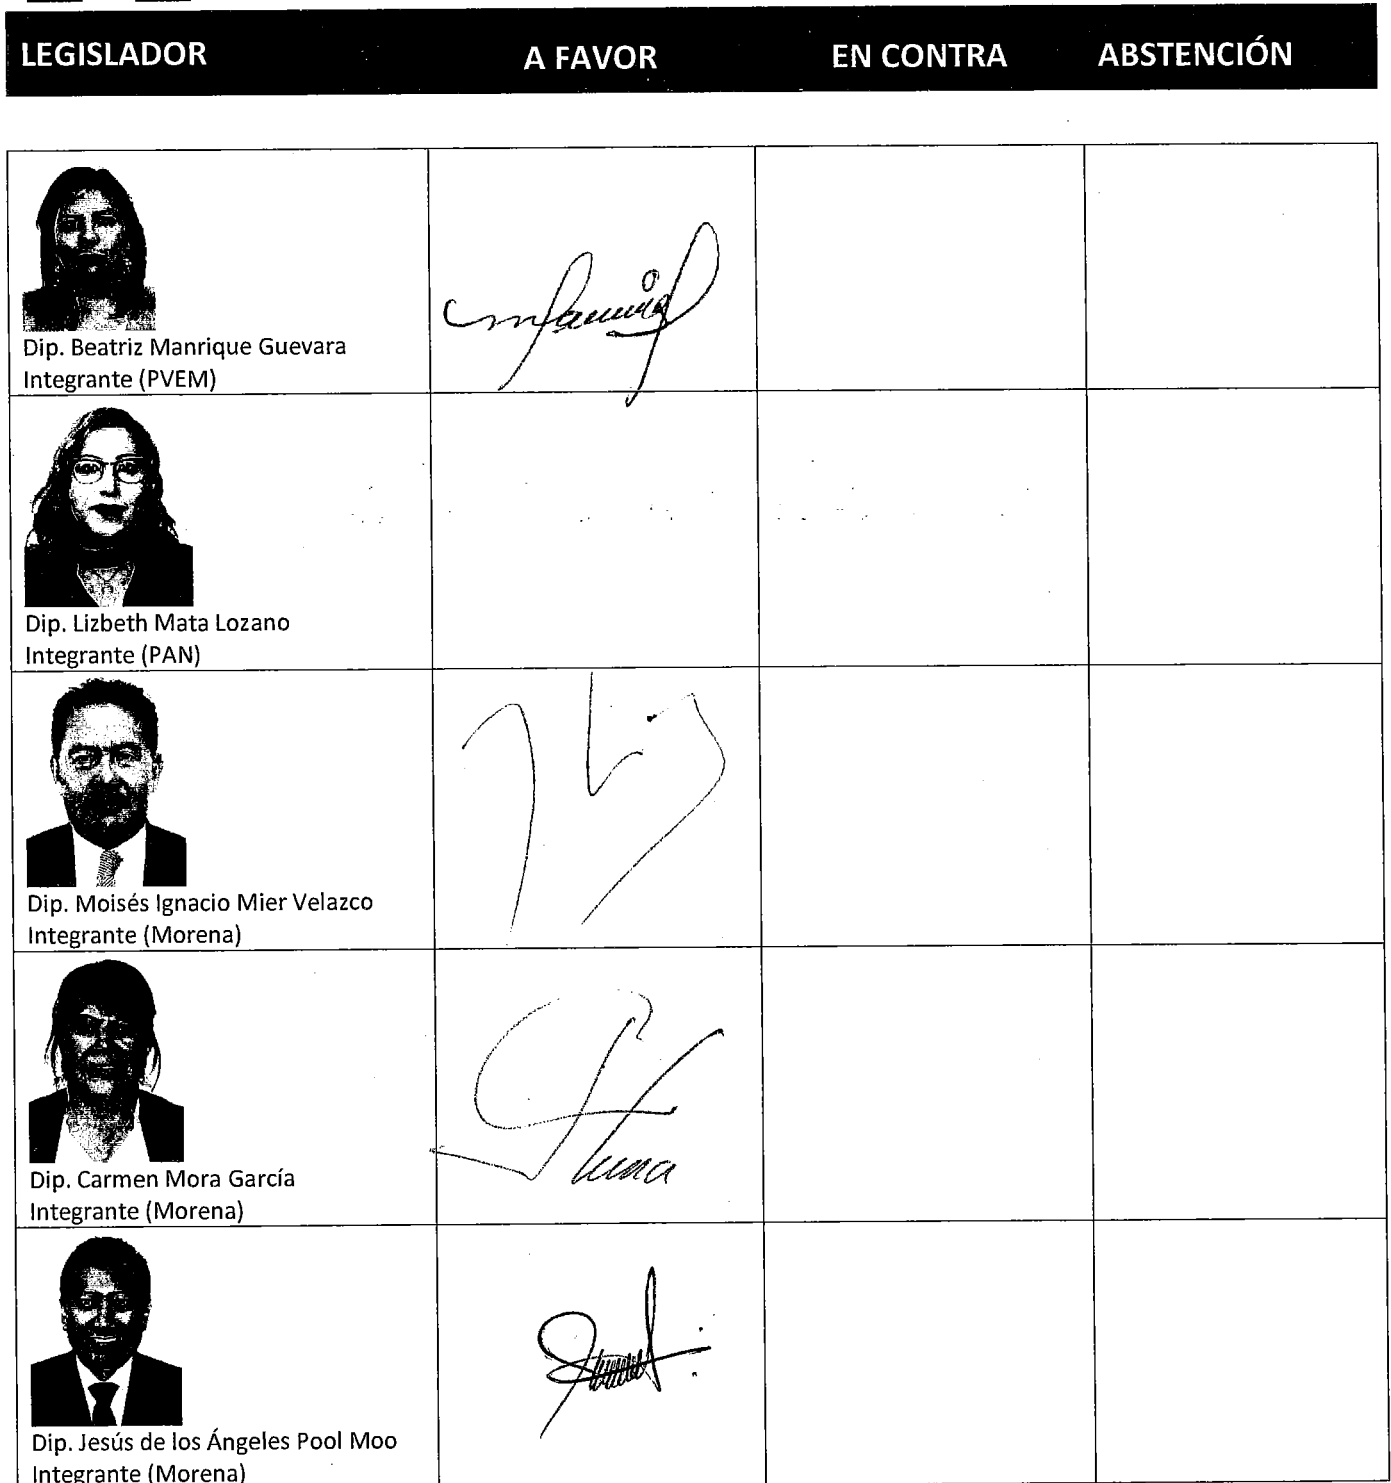 LEGISLADOR A FAVOR EN CONTRA ABSTENCIÓN
Dip. Beatriz Manrique Guevara
Integrante (PVEM)
Dip. Lizbeth Mata Lozano
Integrante (PAN)
Dip. Moisés Ignacio Mier Velazco
Integrante (Morena)
Dip. Carmen Mora García
Integrante (Morena)
Dip. Jesús de los Ángeles Pool Moo
Integrante (Morena)